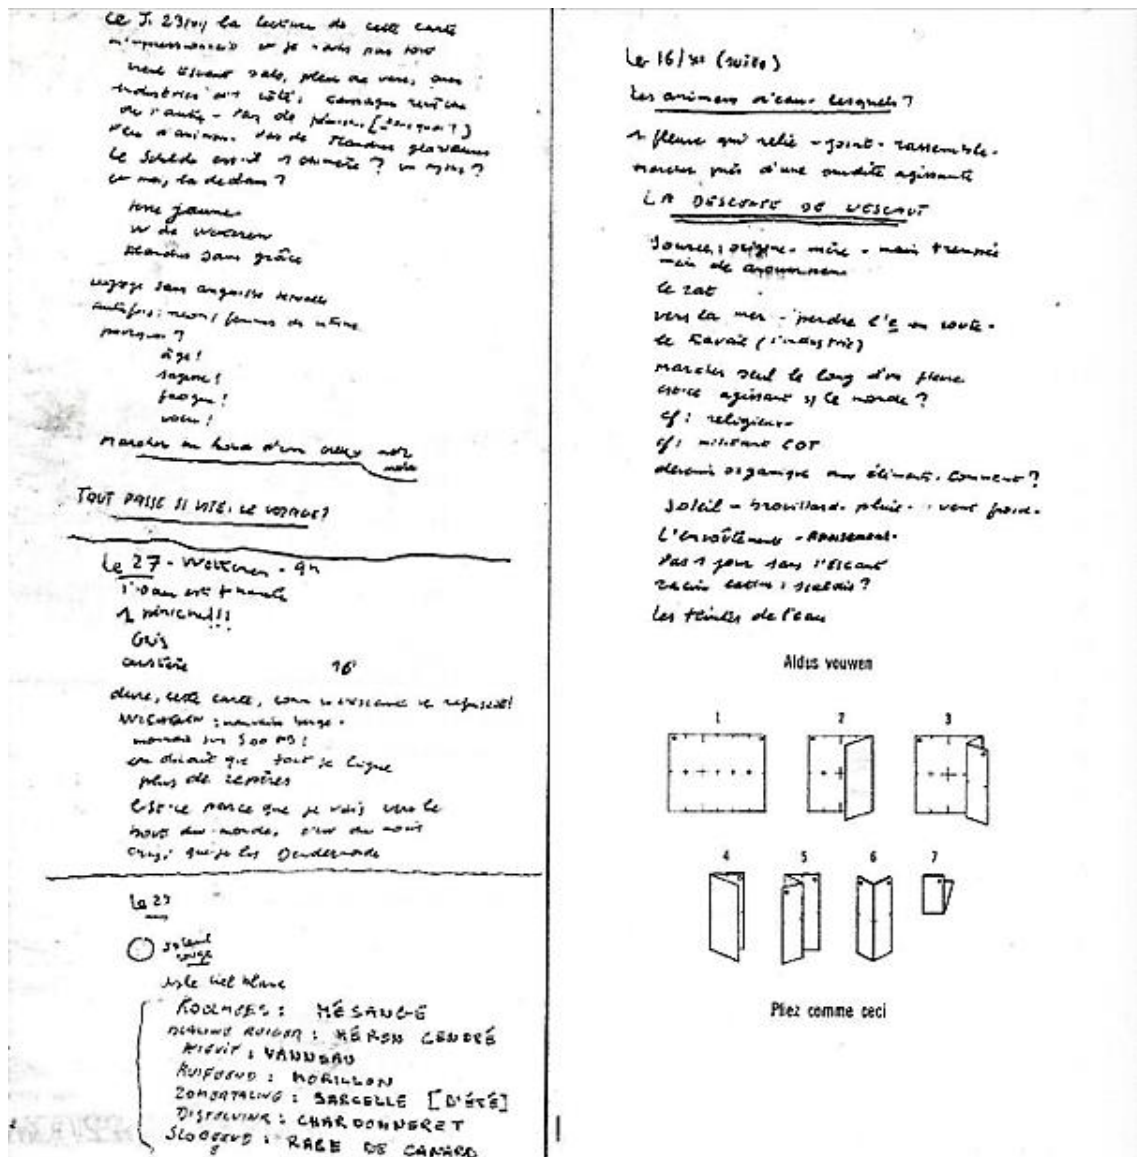 Le J. 23/11 la lecture de cette carte
m'impressionnait et je n'avais pas tort
industries d'un côté,
de l'autre - pas de
peu d'animaux. pas de Flandres glorieuses
Le Schelde est-il 1 chimère? un mythe?
et moi, là dedans?
terre jaune
W de Wetteren
Flandres sans grâce
voyage sans angoisse
autrefois:
pourquoi?
âge!
sagesse!
fatigue!
Marcher au bord d'un creux
TOUT PASSE SI VITE, LE VOYAGE?
Le 27 - Wetteren - 9h
l'eau est
1 péniche!!!
Gris
austère
16
cette carte, comme si l'Escaut se refusait!
WICHELEN: mauvaise berge.
on dirait que tout se ligue
plus de repères
Est-ce parce que je vais vers le
bout du monde,
que je lis Dendermonde
Le 29
soleil
rouge
ciel blanc
KOOLMEES: MÉSANGE
BLAUWE REIGER: HÉRON CENDRÉ
KIEVIT: VANNEAU
KUIFEEND: MORILLON
ZOMERTALING: SARCELLE [D'ÉTÉ]
DISTELVINK: CHARDONNERET
SLOBEEND: RABE DE CANARD
Le 16/XI (suite)
Les animaux d'eau. lesquels?
1 fleuve qui relie - joint - rassemble.
marcher près d'une surdité agissante
LA DESCENTE DE L'ESCAUT
Source, origine - mère - main trempée
main de
le rat
vers la mer - perdre l'e en route.
le travail (l'industrie)
marcher seul le long d'un fleuve
est-ce agissant s/ le monde?
cf: religieux
cf: militant CGT
devenir organique aux éléments. Comment?
Soleil - brouillard - pluie - vent froid.
L'envoûtement - APAISEMENT.
Pas 1 jour sans l'Escaut
racine latine: scaldis?
les teintes de l'eau
Aldus vouwen
1 2 3
4 5 6 7
Pliez comme ceci